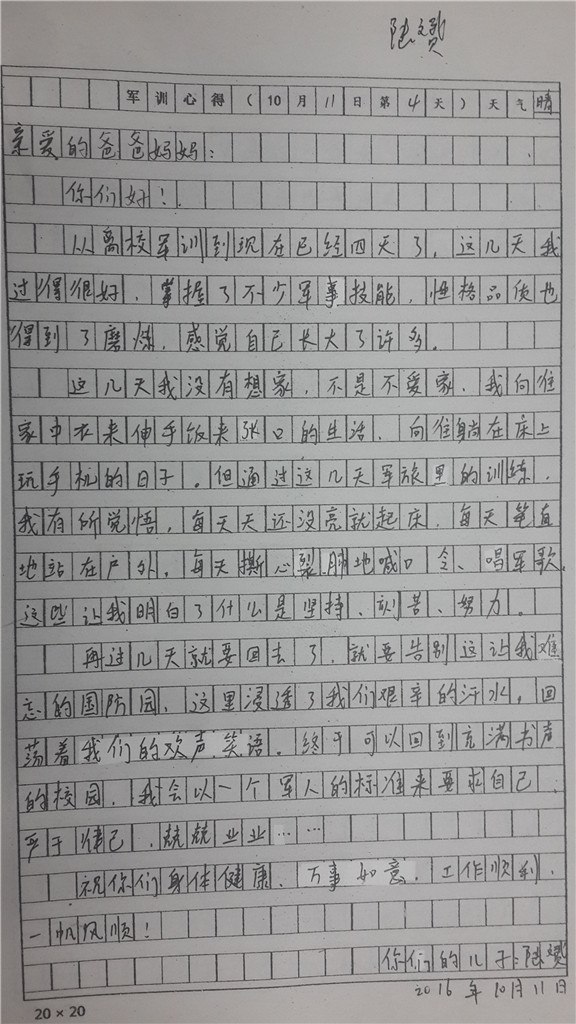 陆赟
军训心得（10月11日第4天）天气晴
亲爱的爸爸妈妈：
你们好！
从离校军训到现在已经四天了，这几天我
过得很好，掌握了不少军事技能，性格品质也
得到了磨炼，感觉自己长大了许多。
这几天我没有想家，不是不爱家，我向往
家中衣来伸手饭来张口的生活，向往躺在床上
玩手机的日子。但通过这几天军旅里的训练，
我有所觉悟，每天天还没亮就起床，每天笔直
地站在户外，每天撕心裂肺地喊口令、唱军歌。
这些让我明白了什么是坚持、刻苦、努力。
再过几天就要回去了，就要告别这让我难
忘的国防园，这里浸透了我们艰辛的汗水，回
荡着我们的欢声笑语。终于可以回到充满书声
的校园，我会以一个军人的标准来要求自己，
严于律己，兢兢业业……
祝你们身体健康，万事如意，工作顺利，
一帆风顺！
你们的儿子：陆赟
2016年10月11日
20×20